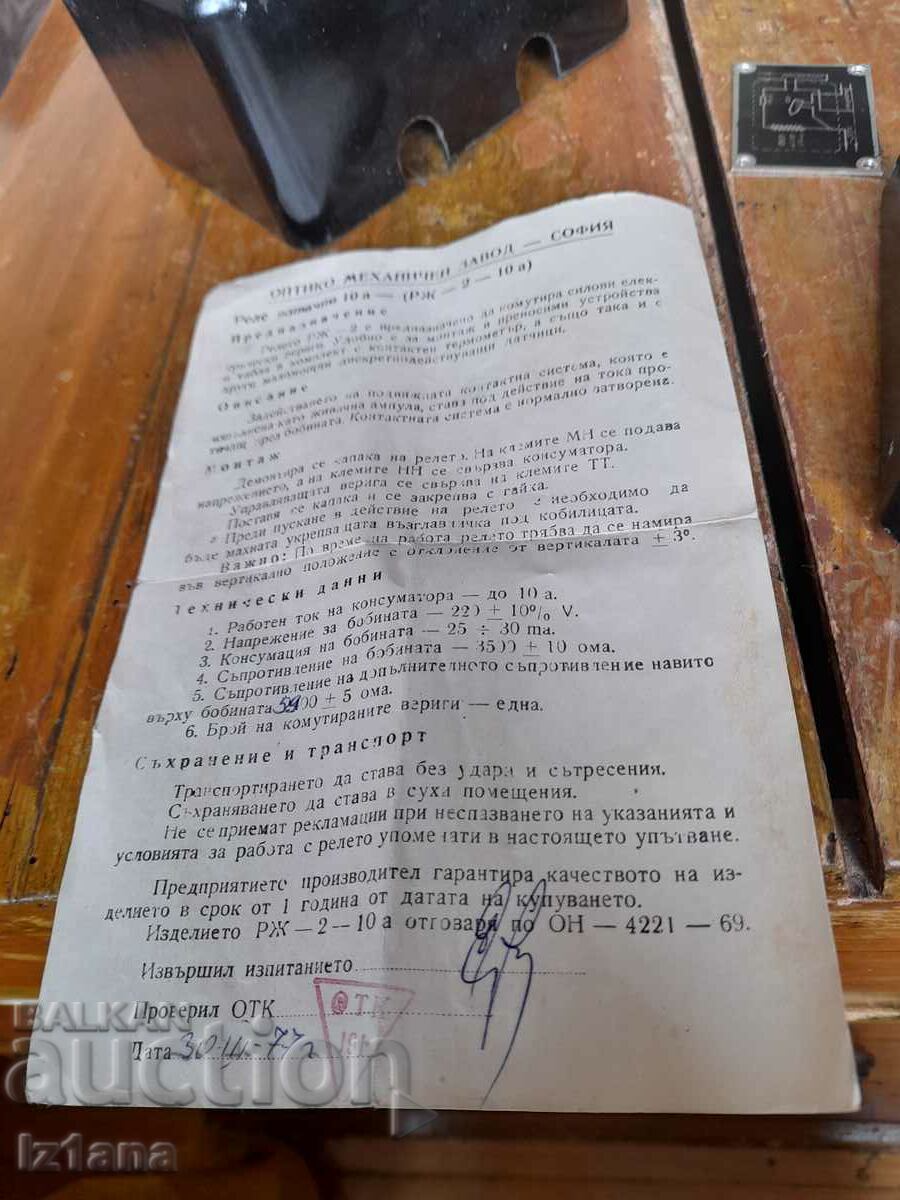 ОПТИКО МЕХАНИЧЕН ЗАВОД — СОФИЯ
Реле 10 а — (РЖ — 2 — 10 а)
Предназначение
Релето РЖ — 2 е предназначено да комутира силови елек-
трически вериги. Удобно е за монтаж в преносими устройства
и табла в комплект с контактен термометър, а също така и с
други маломощни дискретнодействуващи датчици.
Описание
Задействането на подвижната контактна система, която е
изпълнена като живачна ампула, става под действие на тока про-
тичащ през бобината. Контактната система е нормално затворена.
Монтаж
Демонтира се капака на релето. На клемите МН се подава
напрежението, а на клемите НН се свързва консуматора.
Управляващата верига се свързва на клемите ТТ.
Поставя се капака и се закрепва с гайка.
Преди пускане в действие на релето е необходимо да
бъде махната укрепващата възглавничка под кобилицата.
Важно: По време на работа релето трябва да се намира
във вертикално положение с отклонение от вертикалата ± 3°.
Технически данни
1. Работен ток на консуматора — до 10 а.
2. Напрежение за бобината — 220 ± 10% V.
3. Консумация на бобината — 25 ÷ 30 ma.
4. Съпротивление на бобината — 3500 ± 10 ома.
5. Съпротивление на допълнителното съпротивление навито
върху бобината 5900 ± 5 ома.
6. Брой на комутираните вериги — една.
Съхранение и транспорт
Транспортирането да става без удари и сътресения.
Съхраняването да става в сухи помещения.
Не се приемат рекламации при неспазването на указанията и
условията за работа с релето упоменати в настоящето упътване.
Предприятието производител гарантира качеството на из-
делието в срок от 1 година от датата на купуването.
Изделието РЖ — 2 — 10 а отговаря по ОН — 4221 — 69.
Извършил изпитанието
Проверил ОТК
ОТК
Дата 30-III-77 г
BALKAN
auction
Iz1ana